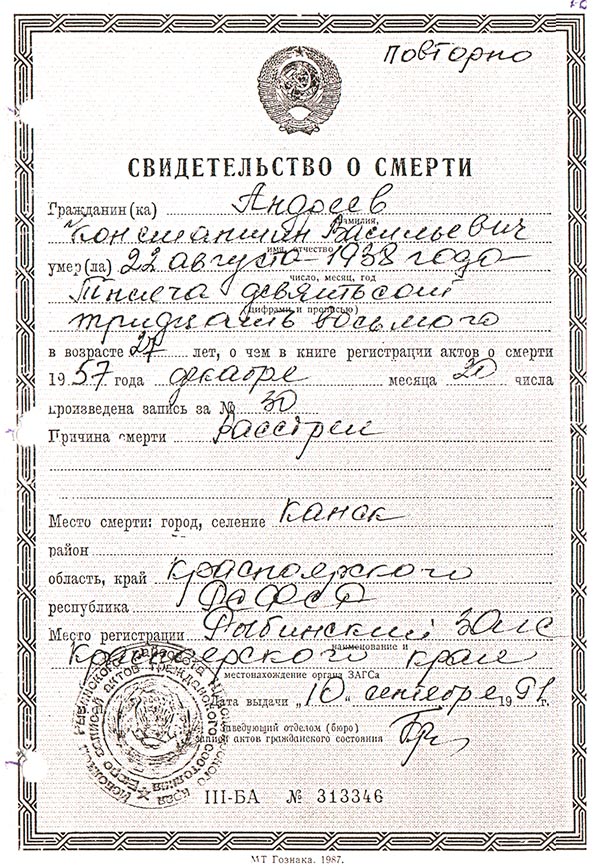 повторно
СВИДЕТЕЛЬСТВО О СМЕРТИ
Гражданин (ка) Андреев
фамилия,
Константин Васильевич
имя, отчество
умер(ла) 22 августа 1938 года
число, месяц, год
Тысяча девятьсот
(цифрами и прописью)
тридцать восьмого
в возрасте 27 лет, о чем в книге регистрации актов о смерти
1957 года декабре месяца 20 числа
произведена запись за № 30
Причина смерти Расстрел
Место смерти: город, селение Канск
район
область, край Красноярского
республика РСФСР
Место регистрации Рыбинский ЗАГС
наименование и
Красноярского края
местонахождение органа ЗАГСа
Дата выдачи „10“ сентября 1991 г.
Заведующий отделом (бюро)
записи актов гражданского состояния
III-БА № 313346
МТ Гознака. 1987.